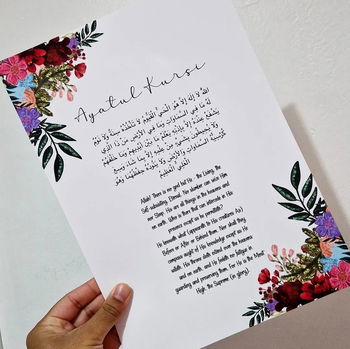 Ayatul Kursi
اللَّهُ لَا إِلَٰهَ إِلَّا هُوَ الْحَيُّ الْقَيُّومُ لَا تَأْخُذُهُ سِنَةٌ وَلَا نَوْمٌ
لَهُ مَا فِي السَّمَاوَاتِ وَمَا فِي الْأَرْضِ مَنْ ذَا الَّذِي
يَشْفَعُ عِنْدَهُ إِلَّا بِإِذْنِهِ يَعْلَمُ مَا بَيْنَ أَيْدِيهِمْ وَمَا خَلْفَهُمْ
وَلَا يُحِيطُونَ بِشَيْءٍ مِنْ عِلْمِهِ إِلَّا بِمَا شَاءَ وَسِعَ
كُرْسِيُّهُ السَّمَاوَاتِ وَالْأَرْضَ وَلَا يَئُودُهُ حِفْظُهُمَا وَهُوَ
الْعَلِيُّ الْعَظِيمُ
Allah! There is no god but He - the Living, The
Self-subsisting, Eternal. No slumber can seize Him
nor Sleep. His are all things in the heavens and
on earth. Who is there that can intercede in His
presence except as he permitteth?
He knoweth what (appeareth to His creatures As)
Before or After or Behind them. Nor shall they
compass aught of his knowledge except as He
willeth. His throne doth extend over the heavens
and on earth, and He feeleth no fatigue in
guarding and preserving them, For He is the Most
High. the Supreme (in glory).